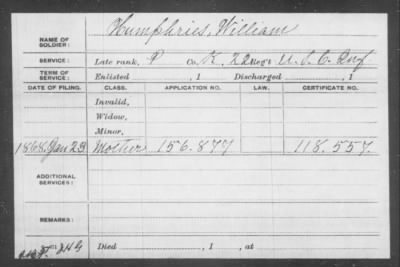 NAME OF SOLDIER: Humphries, William
SERVICE: Late rank, P Co. K, 22 Reg't U.S.C. Inf
TERM OF SERVICE: Enlisted , 1 Discharged , 1
DATE OF FILING. CLASS. APPLICATION NO. LAW. CERTIFICATE NO.
Invalid,
Widow,
Minor,
1868 Jan 23 Mother 156.877 118.557.
ADDITIONAL SERVICES:
REMARKS:
Died , 1 , at